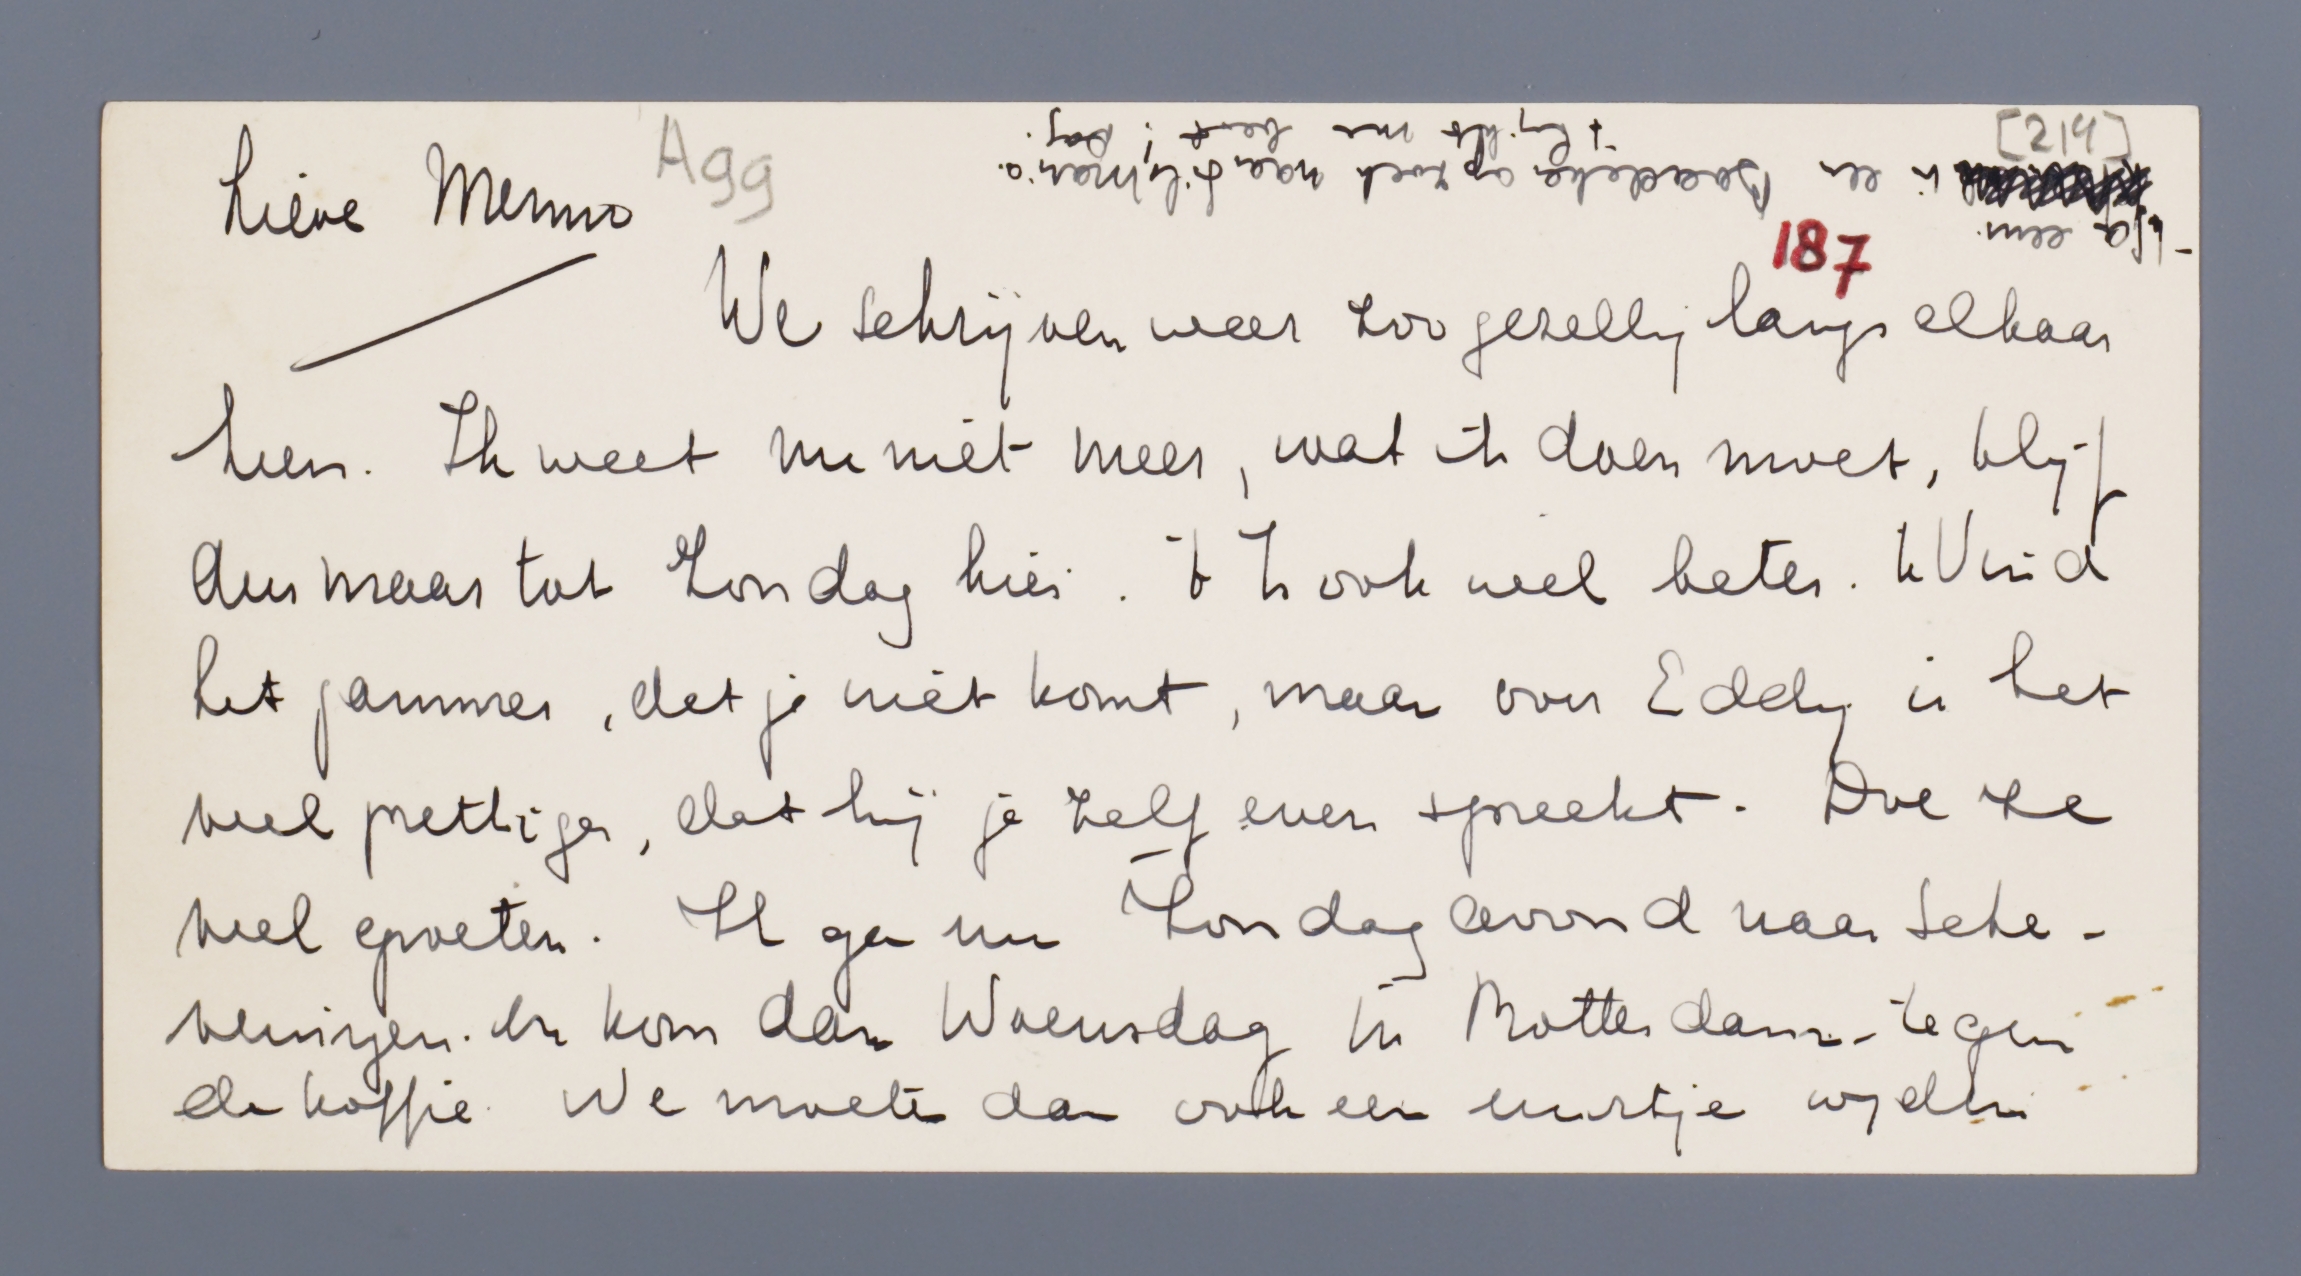 Lieve Menno
Agg
[214]
187
We schrijven weer zoo gezellig langs elkaar
heen. Ik weet nu niet meer, wat ik doen moet, blijf
dus maar tot Zondag hier. 't Is ook wel beter. Ik Vind
het jammer, dat je niet komt, maar voor Eddy is het
veel prettiger, dat hij je zelf even spreekt. Doe ze
veel groeten. Ik ga nu Zondagavond naar Sche-
veningen. En kom dan Woensdag in Rotterdam - tegen
de koffie. We moeten dan ook een uurtje wijden
- Ga eens
in een Baedeker op zoek naar
dag.